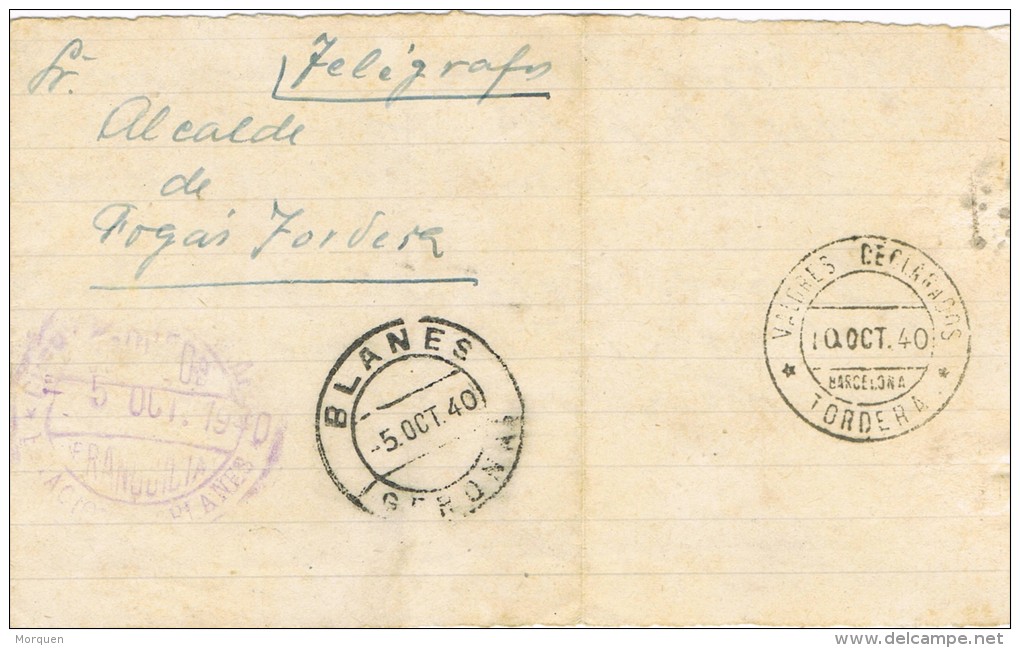 Telégrafos
Sr.
Alcalde
de
Fogás Tordera
VALORES DECLARADOS
10.OCT.40
BARCELONA
* TORDERA *
BLANES
-5.OCT.40
(GERONA)
5 OCT. 1940
FRANQUICIA
BLANES
Morquen
www.delcampe.net